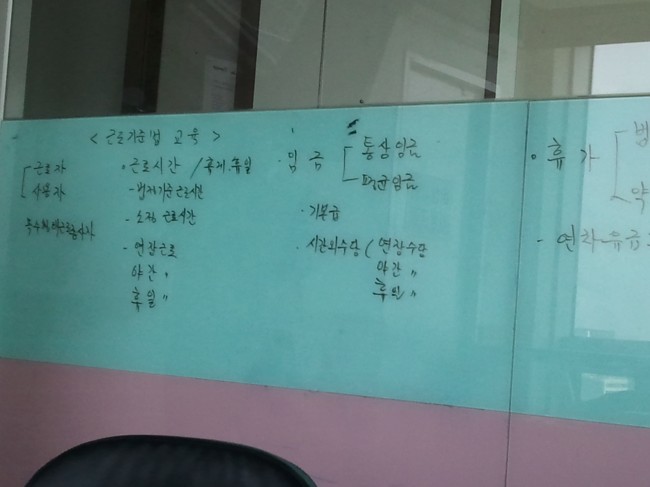 < 근로기준법 교육 >
근로자
사용자
특수형태근로종사자
• 근로시간 / 휴게, 휴일
- 법정기준근로시간
- 소정근로시간
- 연장근로
야간 〃
휴일 〃
· 임금
통상임금
평균임금
· 기본급
· 시간외수당 ( 연장수당
야간 〃
휴일 〃
• 휴가
법
약
- 연차유급